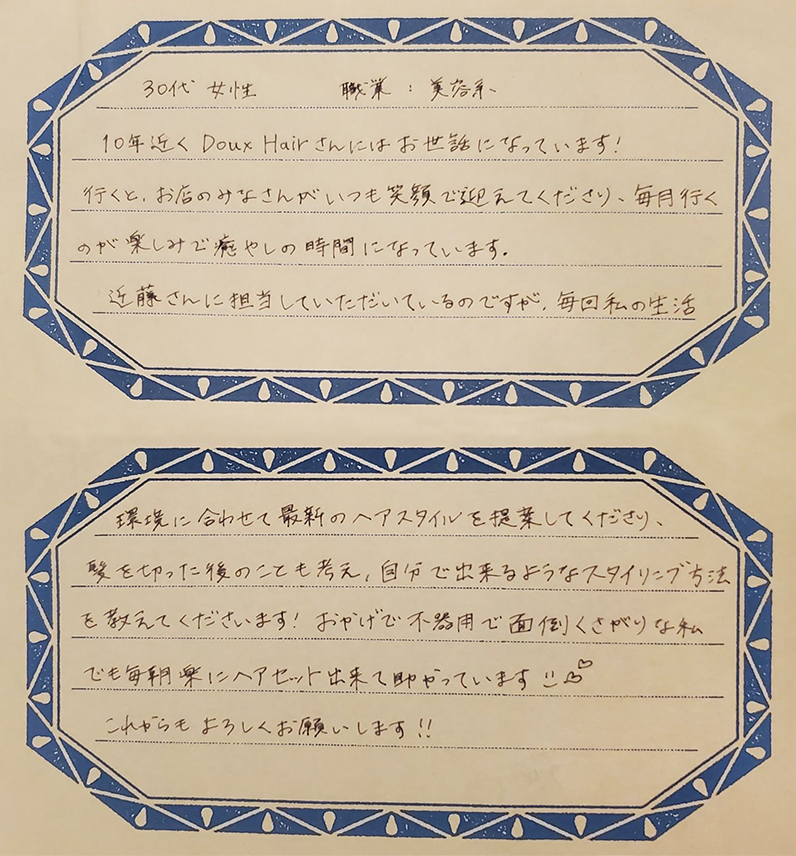 30代 女性 職業：美容系
10年近く Doux Hairさんにはお世話になっています!
行くと、お店のみなさんがいつも笑顔で迎えてくださり、毎月行く
のが楽しみで癒やしの時間になっています。
近藤さんに担当していただいているのですが、毎回私の生活
環境に合わせて最新のヘアスタイルを提案してくださり、
髪を切った後のことも考え、自分で出来るようなスタイリング方法
を教えてくださいます! おかげで不器用で面倒くさがりな私
でも毎朝楽にヘアセット出来て助かっています
これからもよろしくお願いします!!